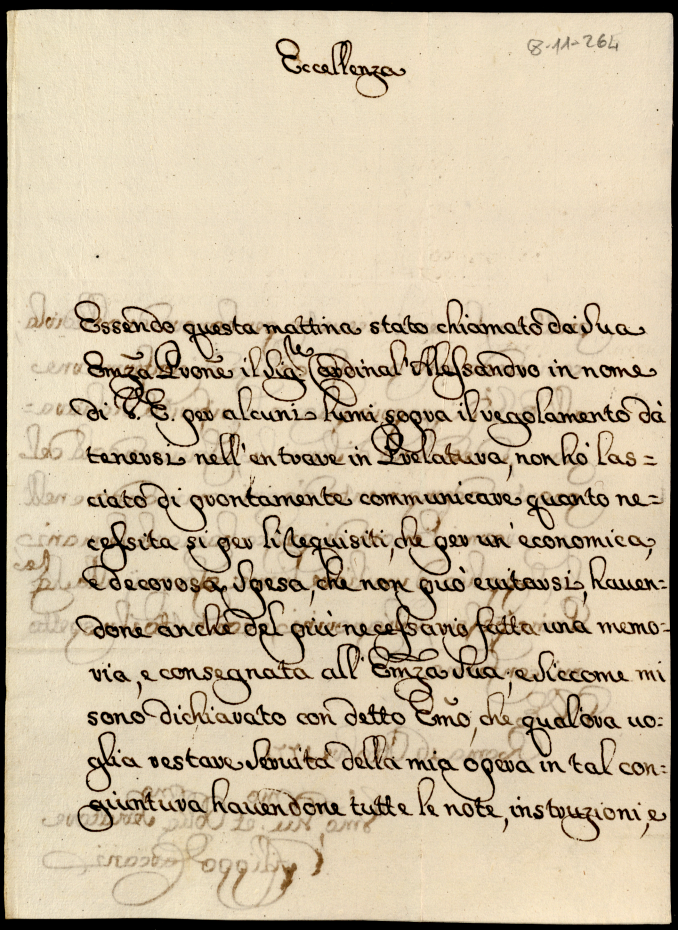 8-11-264
Eccellenza
Essendo questa mattina stato chiamato da Sua
Emza Prone il Sigre Cardinal' Alessandro in nome
di V. E. per alcuni lumi sopra il regolamento dà
tenersi nell'entrare in Prelatura, non hò las=
ciato di prontamente communicare quanto ne=
cessita si per li requisiti, che per un' economica,
e decorosa Spesa, che non può evitarsi, hauen=
done anche del più necessario fatta una memo=
ria, e consegnata all' Emza Sua; e Siccome mi
sono dichiarato con detto Emo, che qual'ora uo=
glia restare Seruita della mia opera in tal con=
giuntura hauendone tutte le note, instruzioni, e